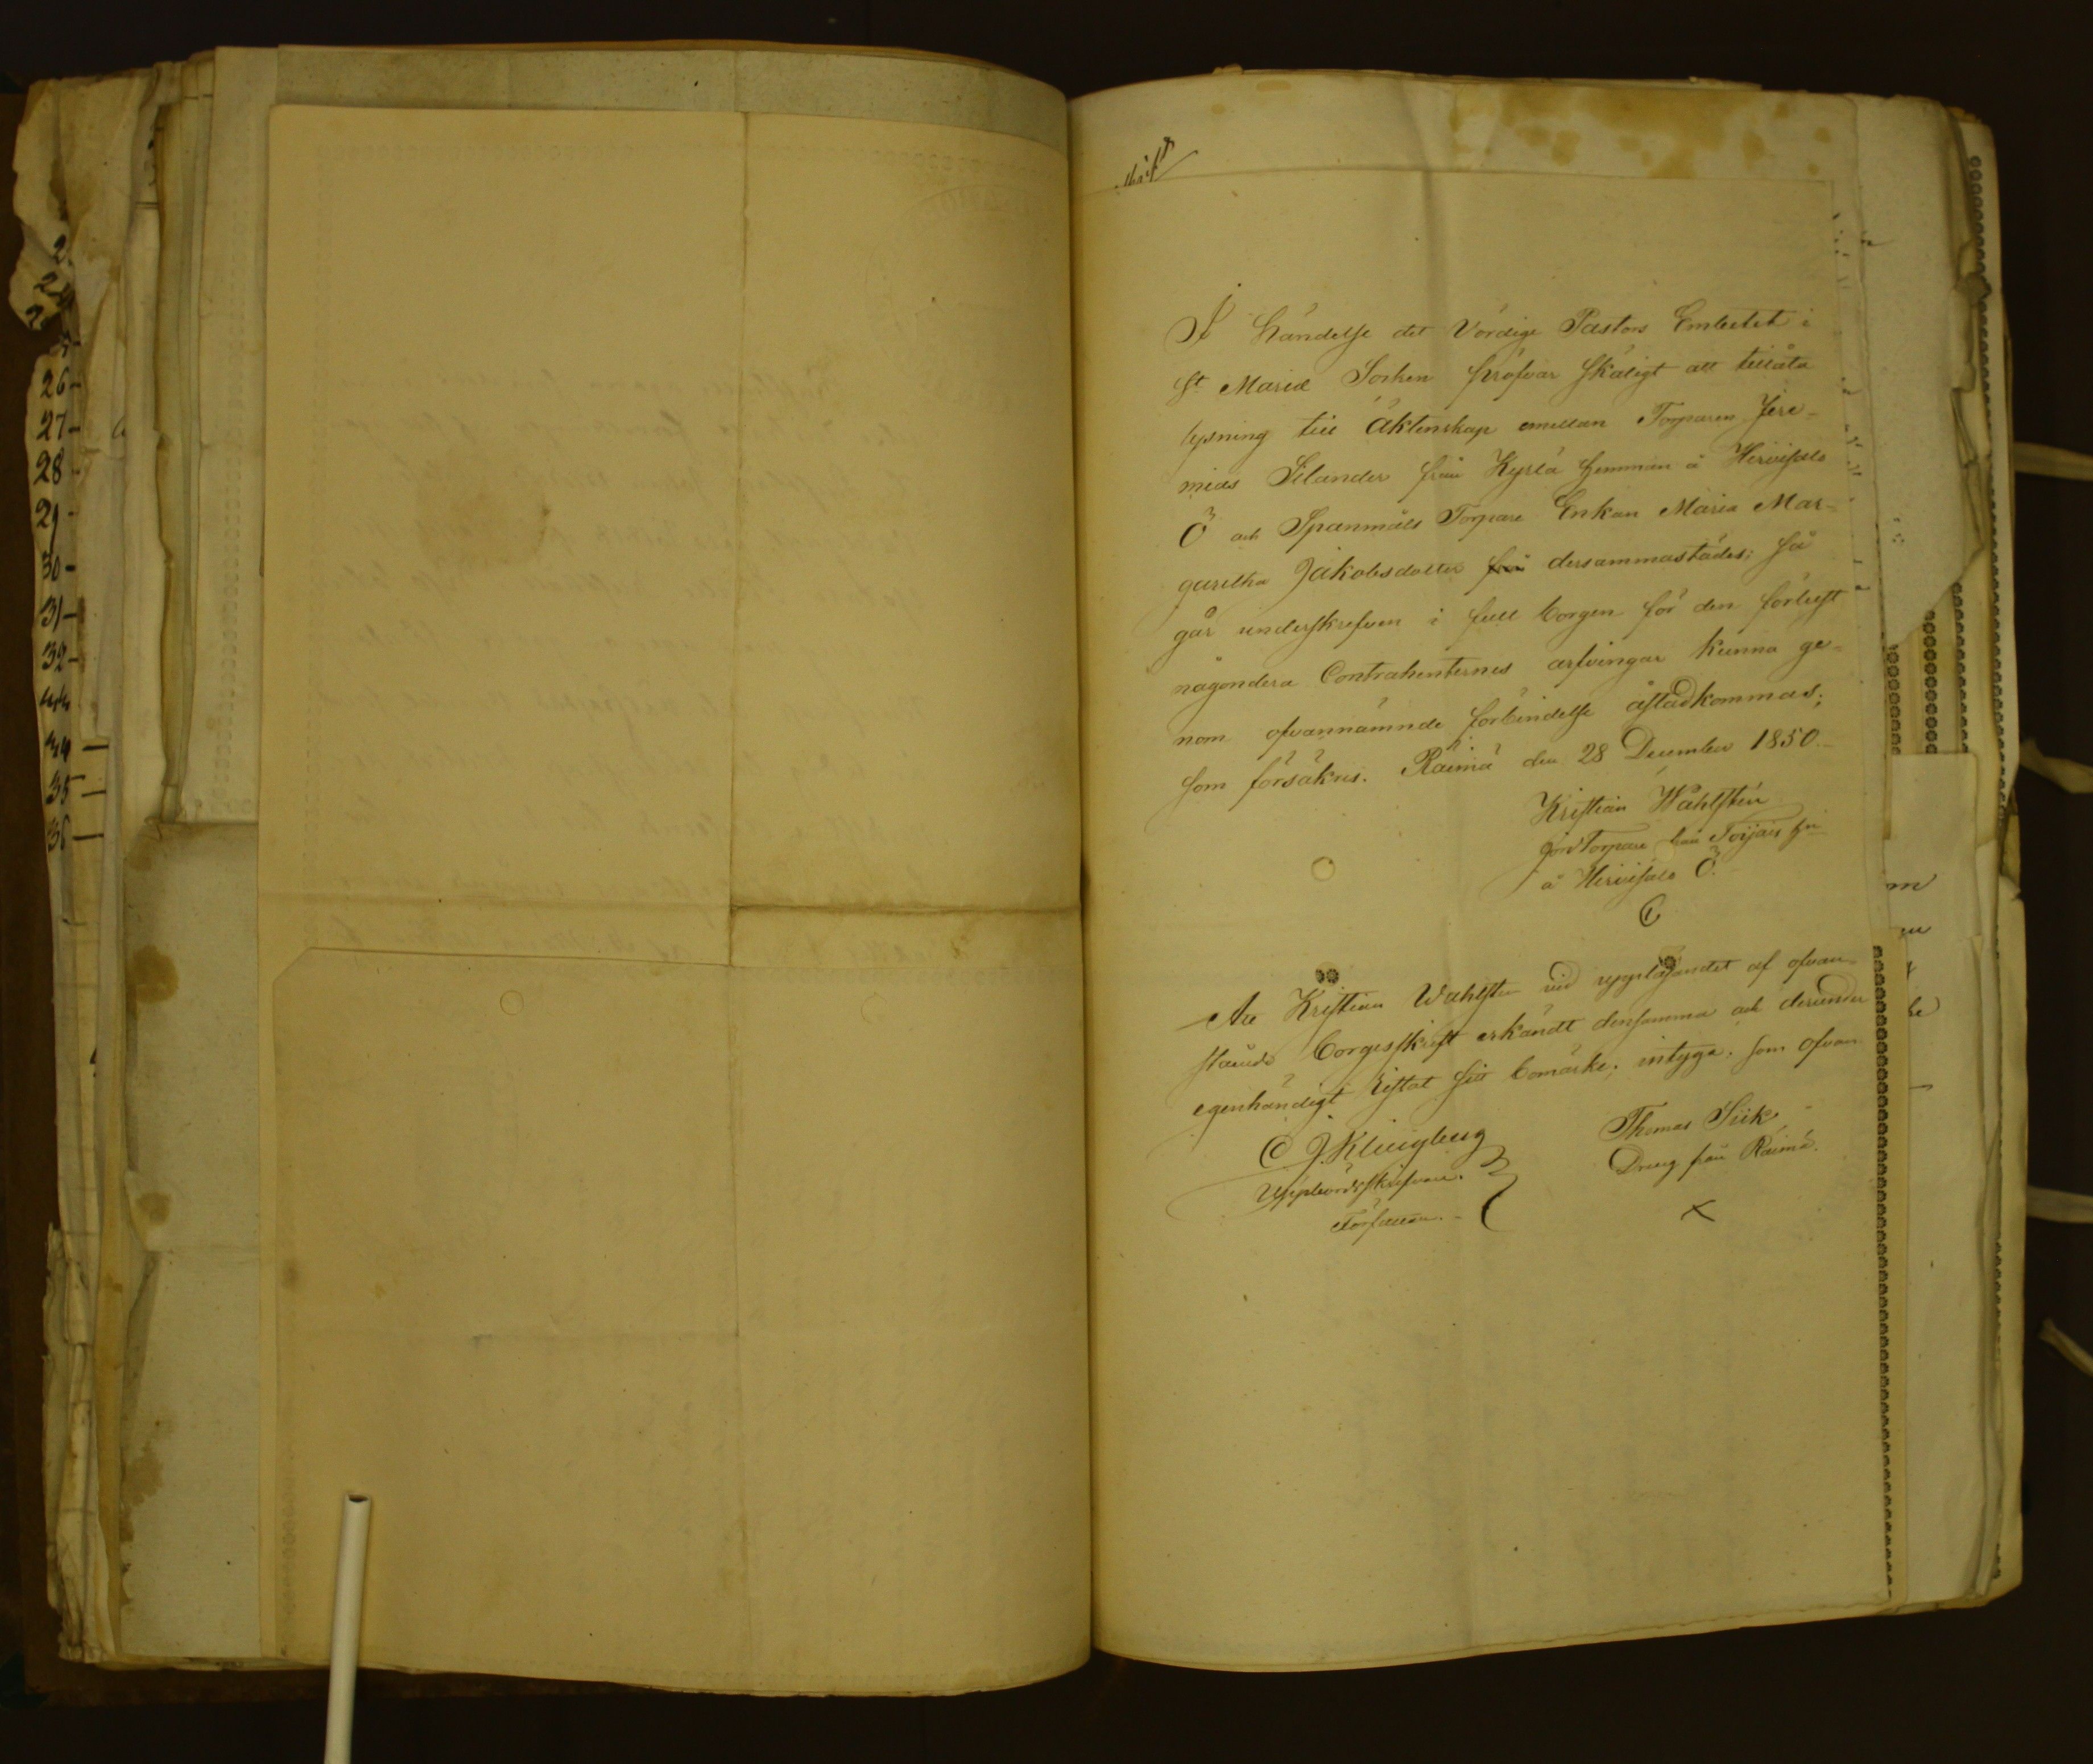 2
24
2
26-
27-
28
29
30-
31-
32-
34 -
35 -
36 -
I händelse det Vördige Pastors Embetet i
St Mariæ Socken pröfvar skäligt att tillåta
lysning till Äktenskap emellan Torparen Jere-
mias Silander från Kyrlä hemman å Hirvisalo
Ö och Spanmåls Torpare Enkan Maria Mar-
garetha Jakobsdotter från dersammastädes; så
går underskrefven i full borgen för den förlust
någondera Contrahenternes arfvingar kunna ge-
nom ofvannämnde förbindelse åstadkommas;
som försäkras. Raimä den 28 December 1850.
Kristian Wahlstén
Torpare från
å Hirvisalo Ö.
Att Kristian Wahlsten vid uppläsandet af ofvan-
stående borgesskrift erkändt densamma och derunder
egenhändigt ristat sitt bomärke; intyga, som ofvan
C J. Klingberg
Uppbördsskrifvare.
Författare.
Thomas Siik
Dreng från Raimä.
x